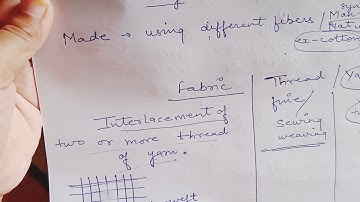 Made → using different fibers /
Man-
ex-cotton
Fabric
Interlacement of
two or more thread
of yarn.
Thread
fine/
sewing
weaving
weft